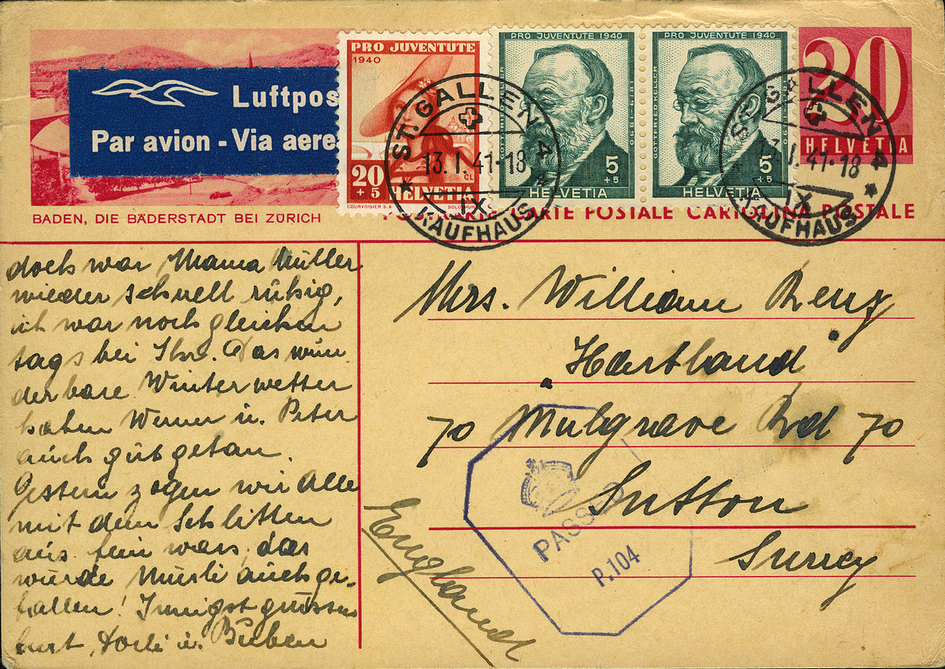 Luftpos
Par avion - Via aere
BADEN, DIE BÄDERSTADT BEI ZÜRICH
PRO JUVENTUTE
1940
20
+5
HELVETIA
COURVOISIER S.A.
PRO JUVENTUTE 1940
5
+5
HELVETIA
PRO JUVENTUTE 1940
5
+5
HELVETIA
20
HELVETIA
ST. GALLEN 4
13.I.41-18
IX
KAUFHAUS
ST. GALLEN 4
13.I.41-18
IX
KAUFHAUS
CARTE POSTALE CARTOLINA POSTALE
doch war Mama Müller
wieder schnell ruhig,
ich war noch gleichen
tags bei Ihr. Das wun
derbare Winterwetter
haben Werner u. Peter
auch gut getan.
Gestern zogen wir Alle
mit dem Schlitten
aus. fein wars, das
würde Musli auch ge-
fallen! Innigst grüssen
Kurt, Dorli u. Buben
Mrs. William Renz
"Hartland"
70 Mulgrave Rd 70
Sutton
Surrey
England
PASSED
P.104